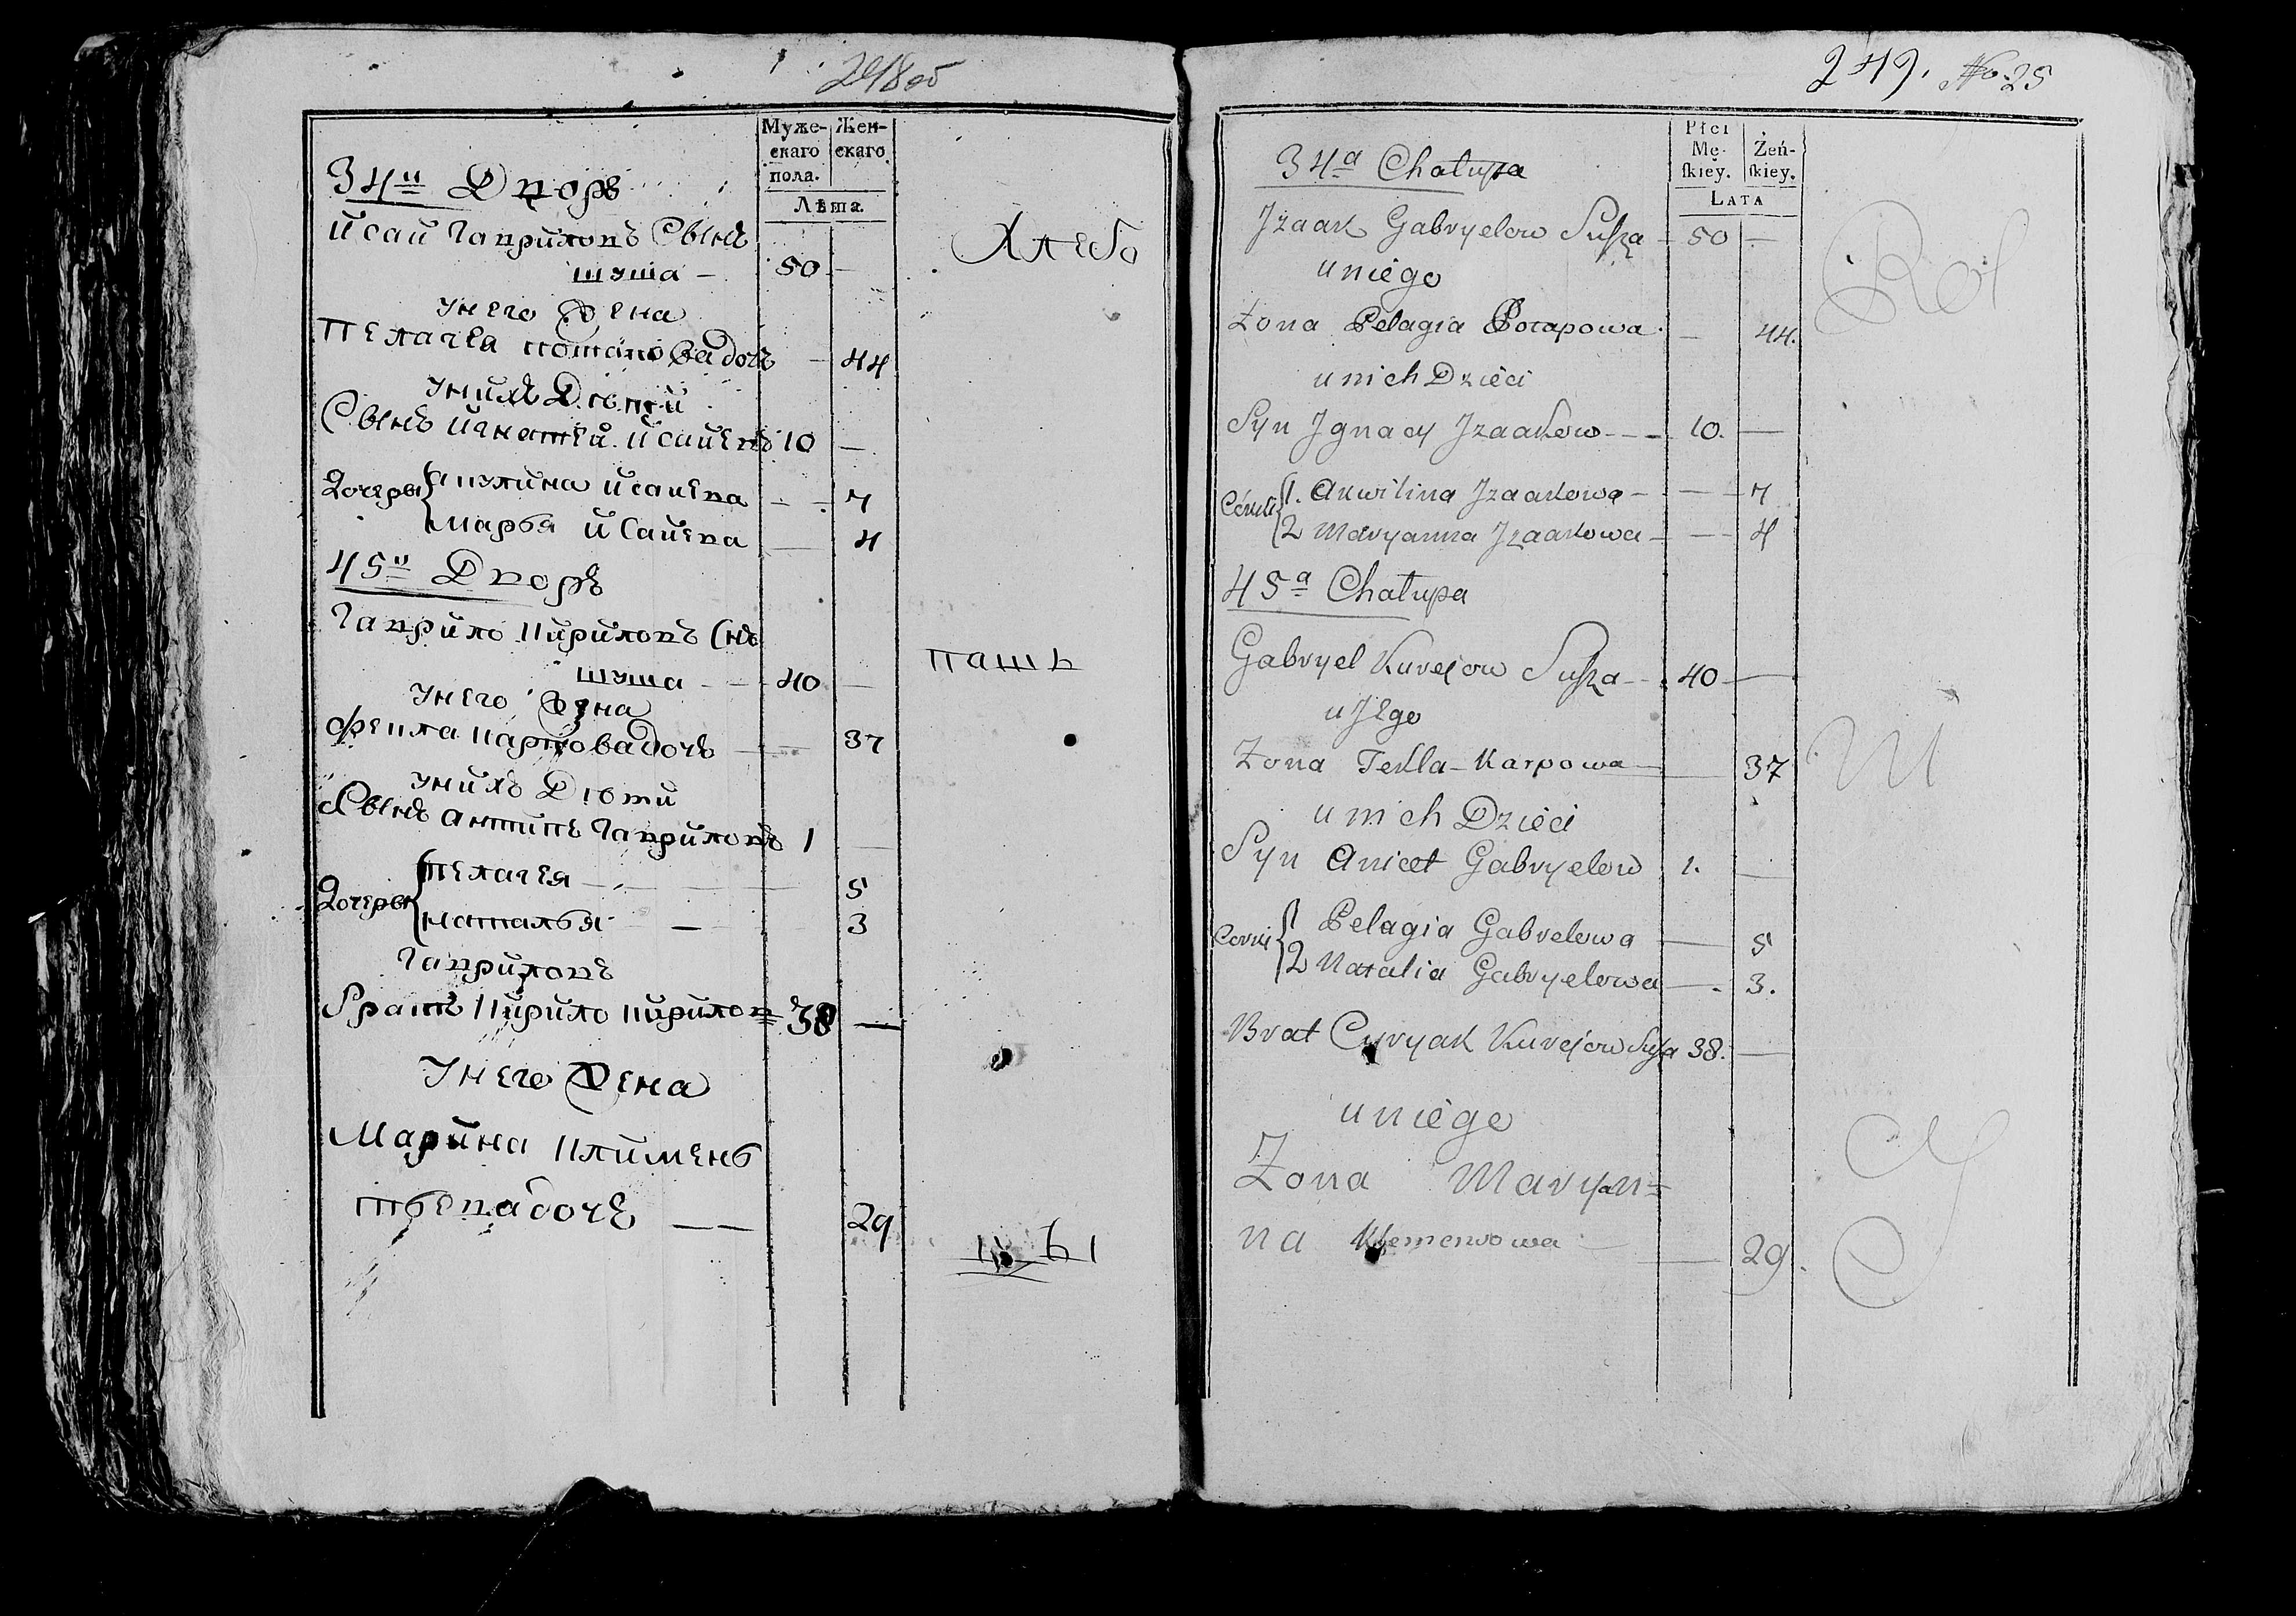 248 об
Муже-
скаго
пола.
Жен-
скаго.
Лѣта.
34й Дворъ
Исай Гавриловъ Сынъ
шуша - 50 —
Унего Жена
Пелагея потаповa дочь — 44
Унихъ Дѣти
Сынъ Игнатей Исаиевъ 10 —
Дочеры { акулина Исаиева — 7
марья Исаиева — 4
45й Дворъ
Гаврило Кириловъ Снъ
шуша — 40 —
Унего Жена
Фекла карповa дочь — 37
Унихъ Дѣти
Сынъ антипъ Гавриловъ 1 —
Дочеры { пелагея — 5
наталья — 3
Гавриловъ
Братъ Кирило Кирилов= 38 —
Унего Жена
Марина Клименъ
тьева дочь — 29
Хлебо
паш ь
цы
249. No. 25
Płci
Mę-
ſkiey.
Żeń-
ſkiey.
Lata
34a Chałupa
Jzaak Gabryelow Suſza - 50 —
u niego
Żona Pelagia Potapowa — 44.
u nich Dzieci
Syn Jgnacy Jzaakow - - - 10. —
Córki { 1. Akwilina Jzaakowa - — 7
2 Maryanna Jzaakowa — 4
45a Chałupa
Gabryel Kurejow Suſza - 40 —
u Jego
Żona Tekla Karpowa — 37
u nich Dzieci
Syn Anicet Gabryelow 1. —
Corki { 1 Pelagia Gabrelowa — 5
2 Natalia Gabryelowa — 3.
Brat Cyryak Kurejow Suſza 38. —
u niego
Żona Maryan=
na Klemensowa — 29.
Rol
ni
cy